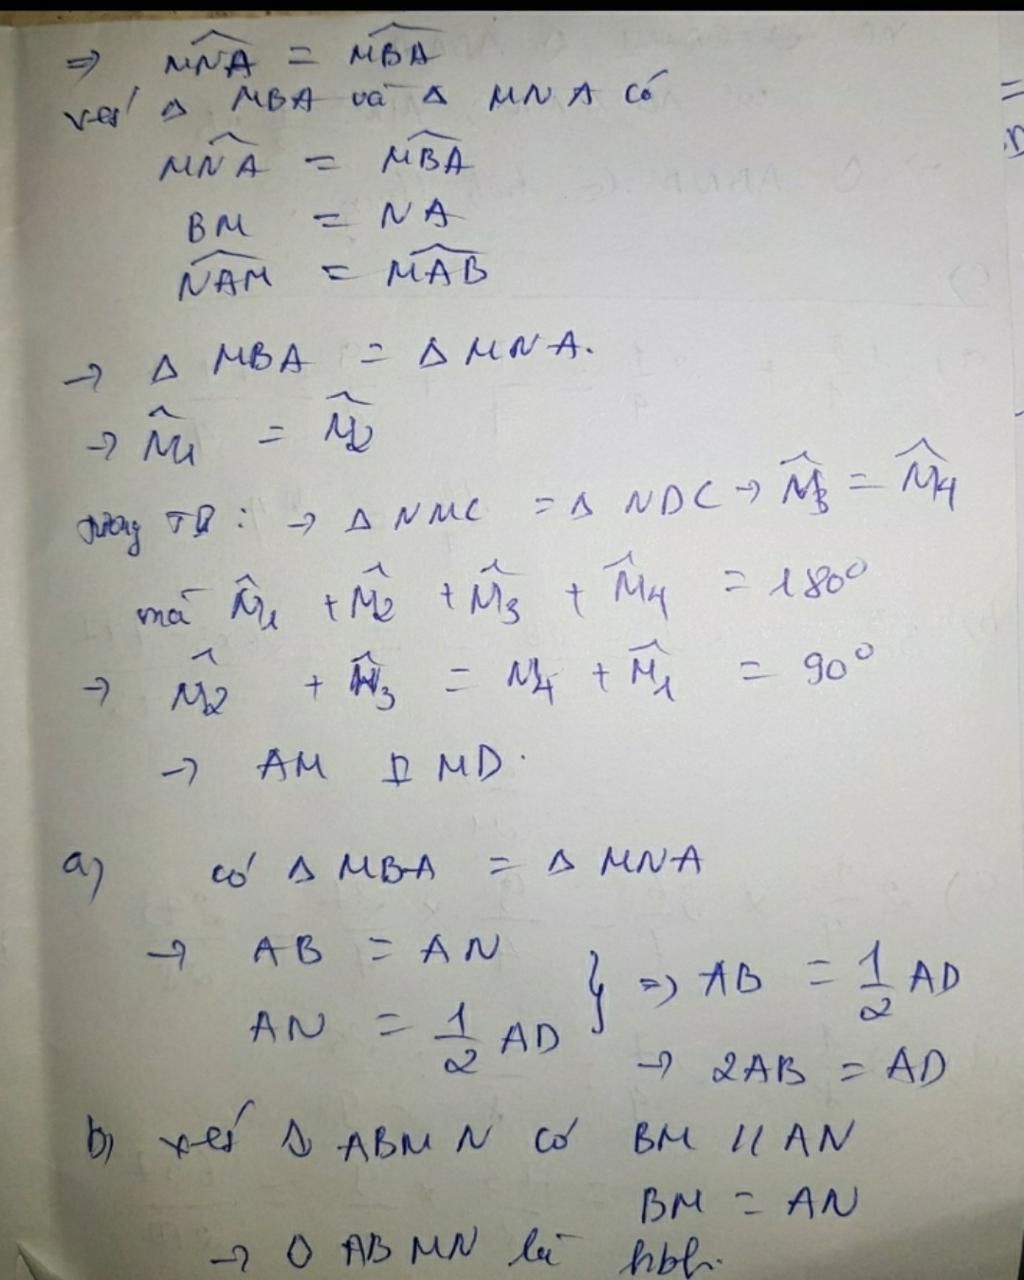 ⇒ \widehat{MNA} = \widehat{MBA}
xét Δ MBA và Δ MNA có
\widehat{MNA} = \widehat{MBA}
BM = NA
\widehat{NAM} = \widehat{MAB}
→ Δ MBA = Δ MNA.
→ \widehat{M1} = \widehat{M2}
TB : → Δ NMC = Δ NDC → \widehat{M3} = \widehat{M4}
mà \widehat{M1} + \widehat{M2} + \widehat{M3} + \widehat{M4} = 180°
→ \widehat{M2} + \widehat{M3} = M4 + \widehat{M1} = 90°
→ AM ⊥ MD.
a) có Δ MBA = Δ MNA
→ AB = AN
AN = 1/2 AD } ⇒ AB = 1/2 AD
→ 2AB = AD
b) xét ABMN có BM // AN
BM = AN
→ ABMN là hbh.